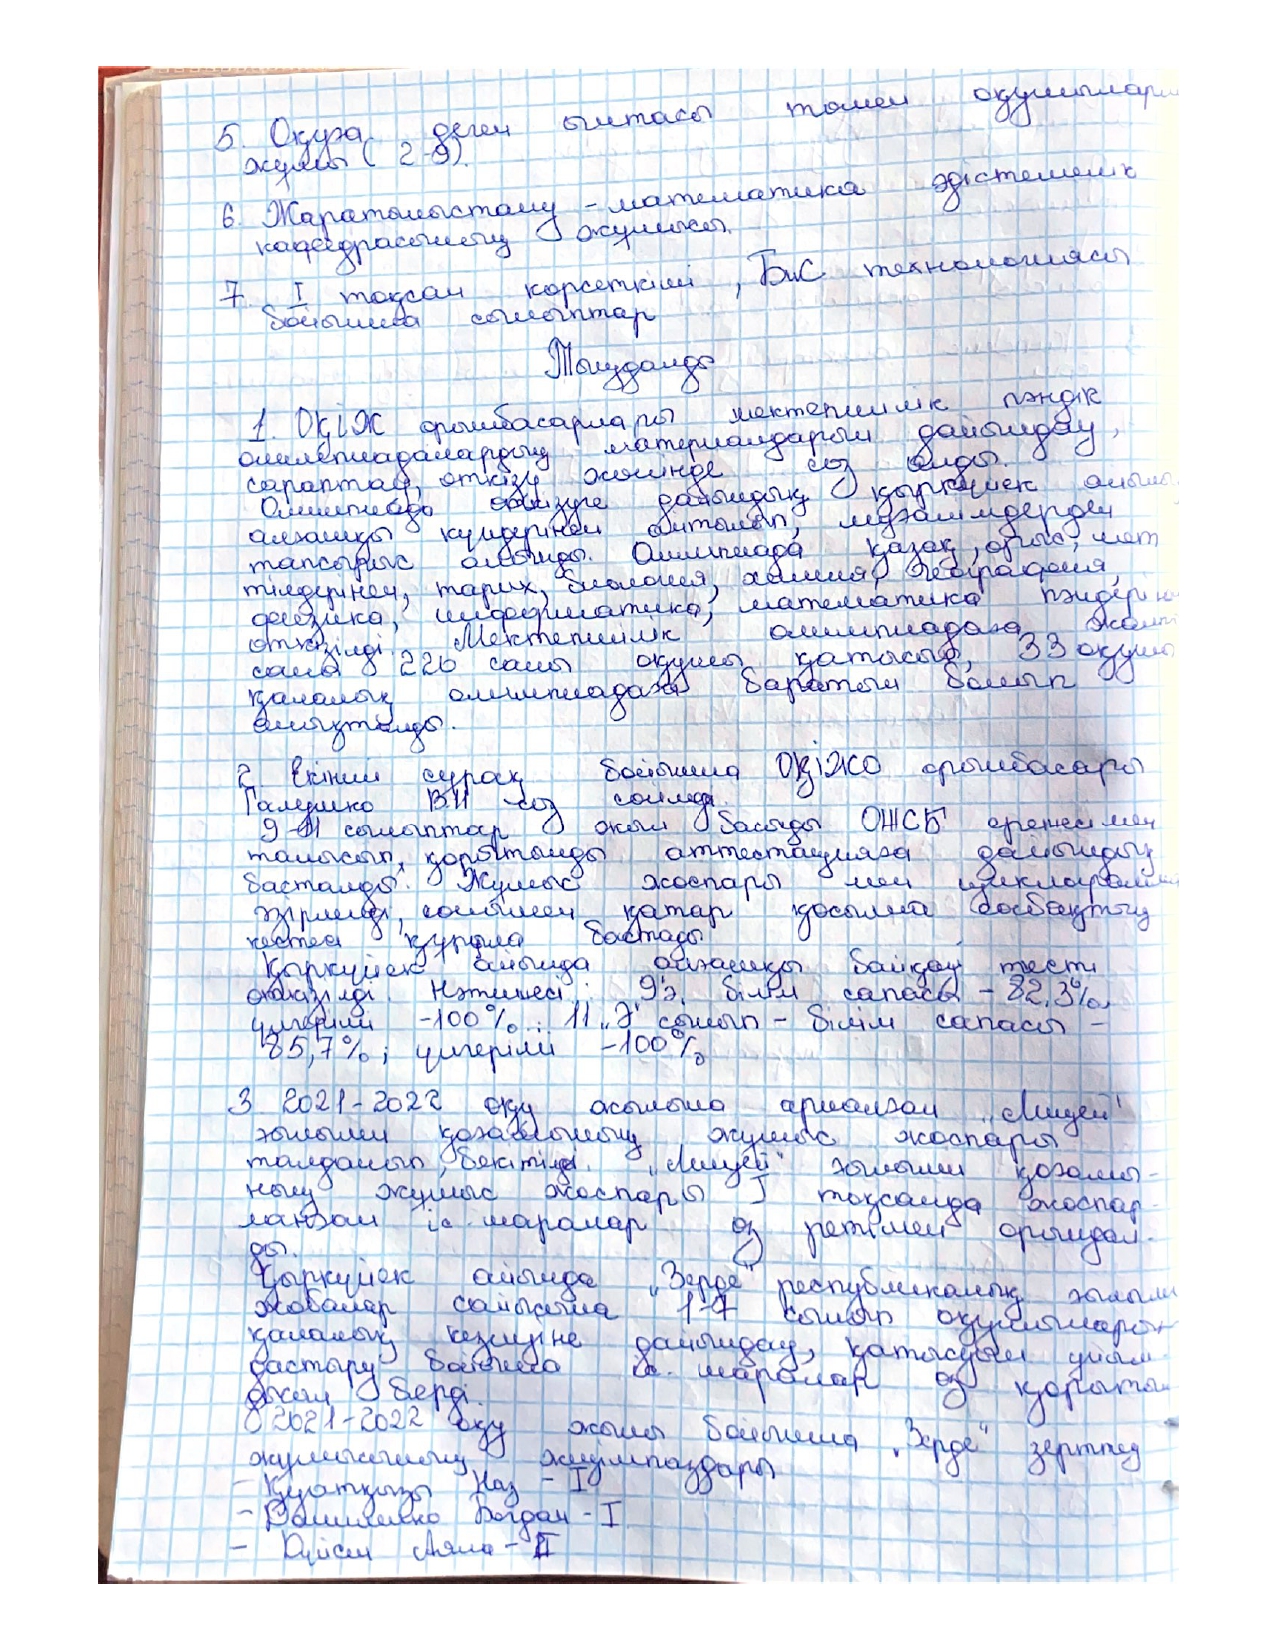 5. Оқуға деген ынтасы төмен оқушылар
жұмы ( 2-9).
6. Жаратылыстану - математика әдістемелік
кафедрасының жұмысы.
7. I тоқсан көрсеткіші, БиС технологиясы
бойынша сыныптар
Тыңдалды
1. ОҚІЖ орынбасарлары мектепішілік пәндік
олимпиадалардың материалдарын дайындау,
сараптау, өткізу жөнінде сөз алды.
Олимпиада өткізуге дайындық қыркүйек айының
алғашқы күндерінен айтылып, мұғалімдерден
тапсырыс алынды. Олимпиада қазақ, орыс, шет
тілдерінен, тарих, биология, химия, география,
физика, информатика, математика пәндерінен
өткізілді. Мектепішілік олимпиадаға жалпы
саны 226 саны оқушы қатысып, 33 оқушы
қалалық олимпиадаға баратын болып
анықталды.
2 Екінші сұрақ бойынша ОҚІЖО орынбасары
Галушко В.И сөз сөйледі.
9-11 сыныптар жыл басында ОЖСБ ережесімен
танысып, қорытынды аттестацияға дайындық
басталды. Жұмыс жоспары мен циклограмма
әзірленді, сонымен қатар қосымша сабақтың
кестесі құрыла бастады
Қыркүйек айында алғашқы байқау тесті
өткізілді. Нәтижесі: 9э білім сапасы - 82,3%,
үлгерімі -100%; 11 "Э" сынып - білім сапасы -
85,7%; үлгерімі -100%
3 2021-2022 оқу жылына арналған „Лицей"
ғылыми қоғамының жұмыс жоспары
талданып, бекітілді. „Лицей" ғылыми қоғамы-
ның жұмыс жоспары I тоқсанда жоспар-
ланған іс-шаралар өз ретімен орындал-
ды.
Қыркүйек айында „Зерде" республикалық ғылыми
жобалар сайысына 1-7 сынып оқушыларын
қалалық кезеңіне дайындау, қатысуын ұйым-
дастыру бойынша іс-шаралар өз қорытын
дысын берді.
2021-2022 оқу жылы бойынша „Зерде" зерттеу
жұмысының жеңімпаздары
- Қуатқызы Наз - I
- Вашленко Богдан - I
- Дүйсен Аяла - II